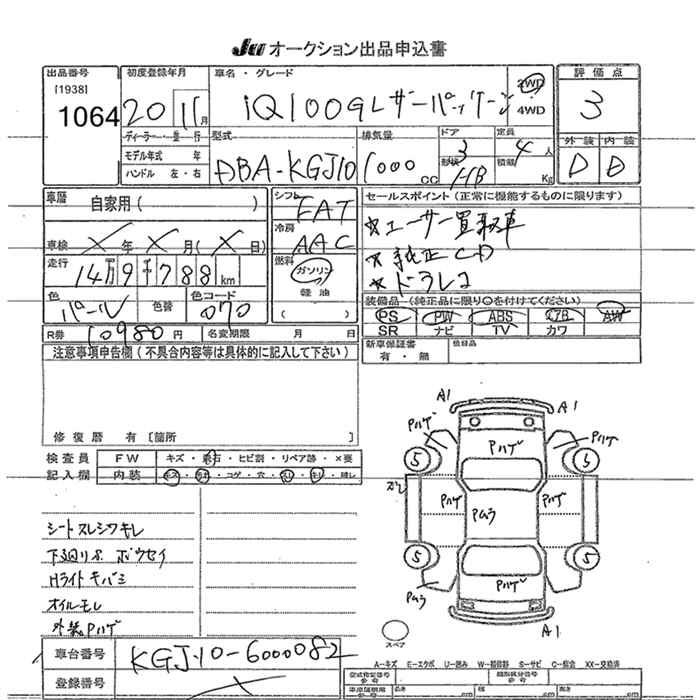 JU オークション出品申込書
出品番号 [1938] 1064
初度登録年月 20 11月
車名・グレード iQ100Gレザーパッケージ
2WD ・ 4WD
評価点 3
ディーラー・並行
モデル年式 年
ハンドル 左・右
型式 DBA-KGJ10
排気量 1000 CC
ドア 3
形状 HB
定員 4人
積載
外装 D 内装 D
車歴 自家用( )
車検 ×年×月(×日)
走行 14万9千788km
色 パール 色替 色コード 070
シフト FAT
冷房 AAC
燃料 ガソリン 軽油 ( )
R券 10980円 名変期限 月 日
セールスポイント(正常に機能するものに限ります)
*ユーザー買取車
*純正CD
*ドラレコ
装備品(純正品に限り○を付けてください)
PS PW ABS エアB AW
SR ナビ TV カワ
新車保証書 有・無
後日品
注意事項申告欄(不具合内容等は具体的に記入して下さい)
修復歴 有 [箇所 ]
検査員 FW キズ・飛石・ヒビ割・リペア跡・×要
記入欄 内装 キズ・汚れ・コゲ・穴・スレ・キレ・欠し
シートスレシワキレ
下廻りサビボウセイ
Hライトキバミ
オイルモレ
外装Pハゲ
A1 A1
Pハゲ Pハゲ Pハゲ
5 5
Pハゲ Pムラ Pハゲ
5 5
Pムラ Pハゲ
A1
スペア
車台番号 KGJ10-6000082
登録番号
A-キズ E-エクボ U-凹み W-補修跡 S-サビ C-腐食 XX-交換済
型式指定番号 類別区分番号